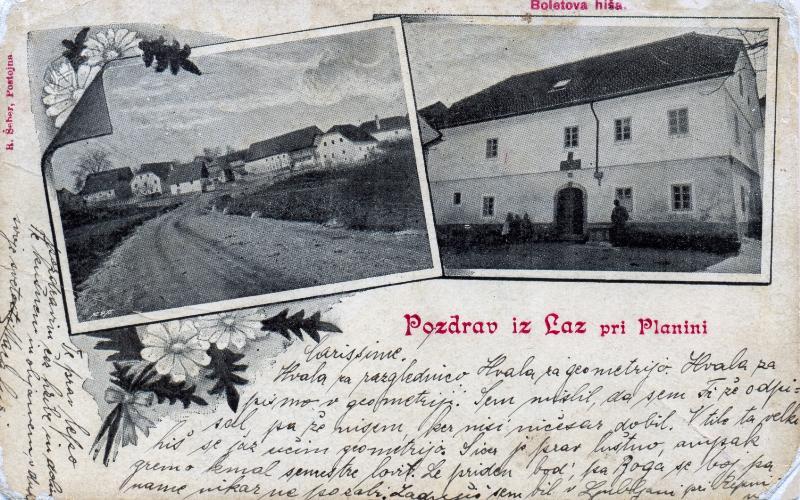 Boletova hiša.
R. Šeber, Postojna
Pozdrav iz Laz pri Planini
Carissime.
Hvala za razglednico Hvala za geometrijo. Hvala za
pismo v geometriji. Sem mislil, da sem Ti že odpi-
sal, pa že nisem ker nisi ničesar dobil. V tile ta velki
hiš se jaz učim geometrijo. Sicer je prav luštno, ampak
gremo kmal semestre lovit. Le priden bodi pa Boga se boj pa
name nikar ne pozabi. sem bil v Ljubljani pri
Te prav lepo
pozdravim